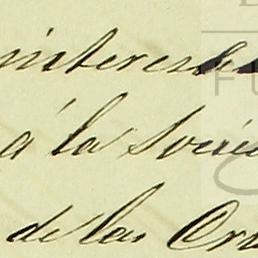 intereses
á la Socie
de las Or